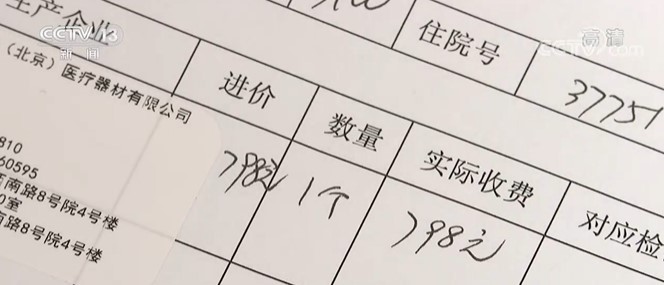 CCTV 13
新闻
高清
CCTV.com
生产企业
住院号
37751
（北京）医疗器材有限公司
进价
数量
实际收费
对应检
810
60595
798元
1个
798元
南路8号院4号楼
室
路8号院4号楼